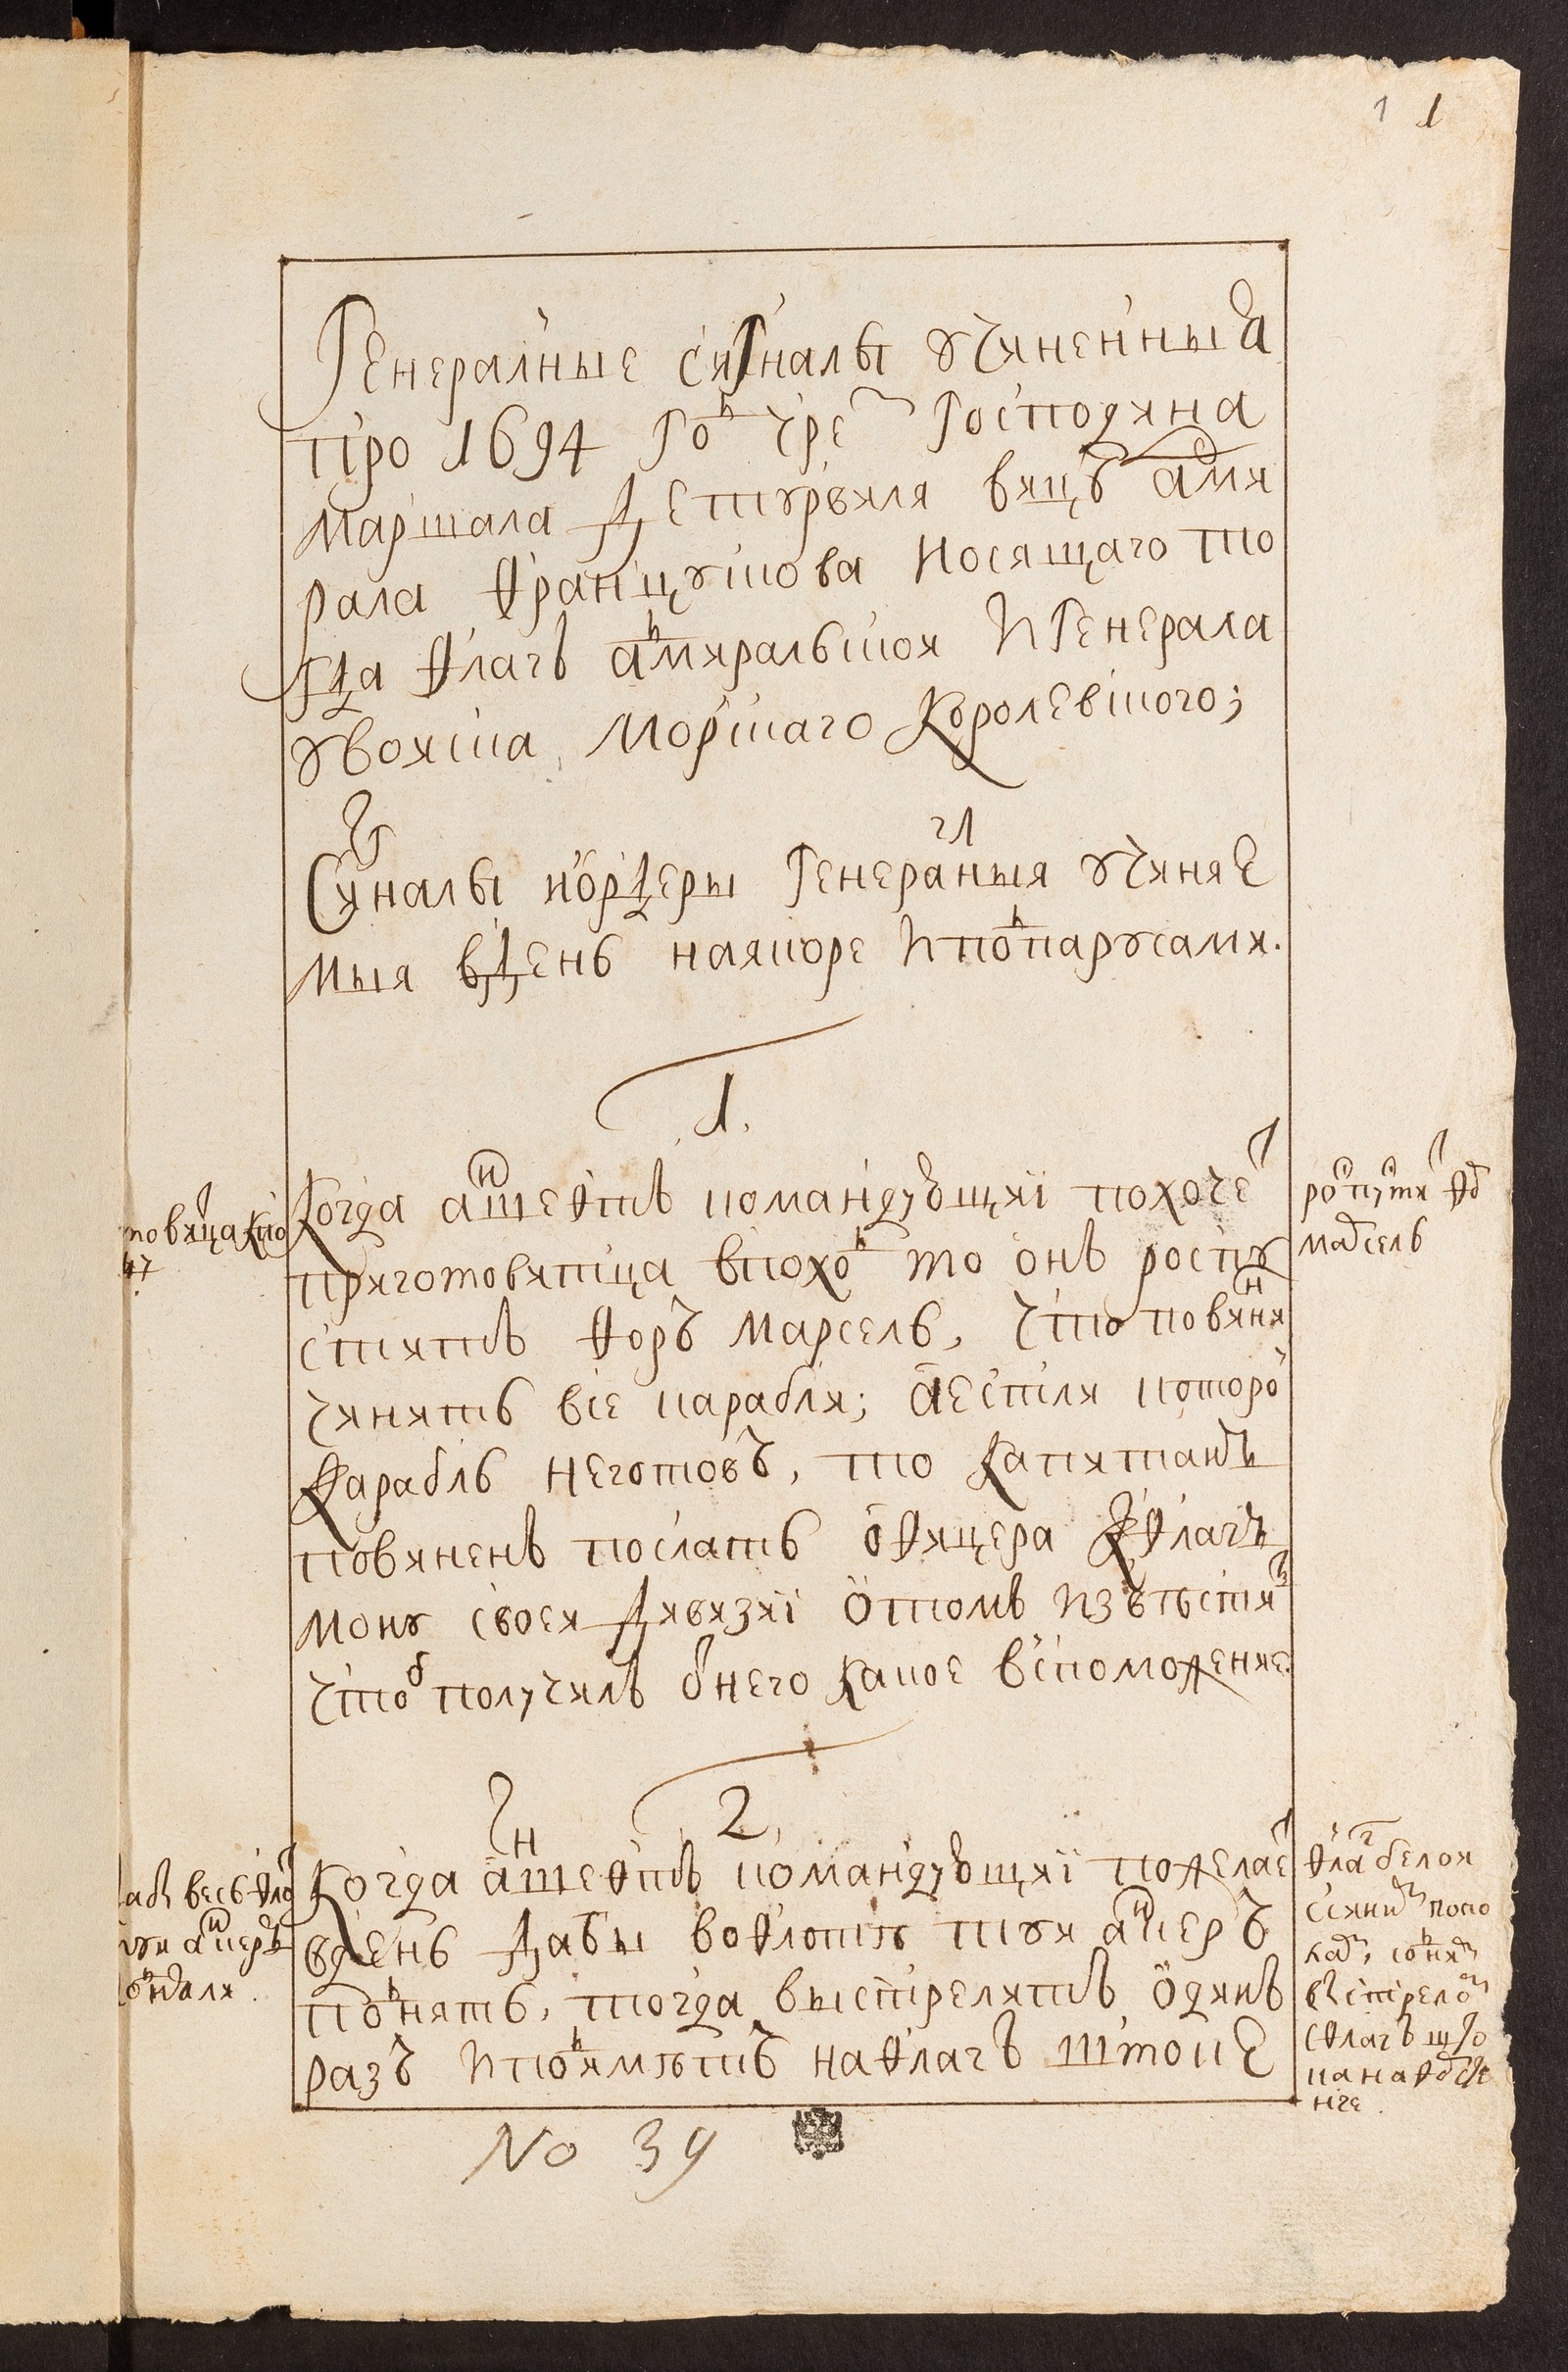 1 1
Генералные сигналы учиненныя
про 1694 год чрез Господина
маршала Детурвиля вицъ адми
рала Францускова носящаго то
гда Флагъ адмиральской и Генерала
увоиска морскаго Королевского;
Сигналы иордеры Генералныя учиняе
мыя вдень наякоре иподпарусами.
1.
Когда аншефтъ командующиі похочет
приготовитца впоход то онъ роспу
ститъ Форъ марсель, Что повинни
чинить все карабли; аестли которой
Карабль неготовъ, то Капитанъ
повиненъ послать офицера кФлагъ
ману своеи Дивизиі отомъ извѣстить
Чтоб получилъ отнего Какое вспоможение.
2.
Когда аншефтъ командующиі пожелает
вдень Дабы воФлотѣ туи анкеръ
поднять, тогда выстрелитъ одинъ
разъ иподыметъ наФлагъ штоке
товитца кпо
роспутит Фор
марсель
весь Фло
туи анкеръ
Флаг белои
ссиним
выстрелом
сФлагъ што
ка на
No 39